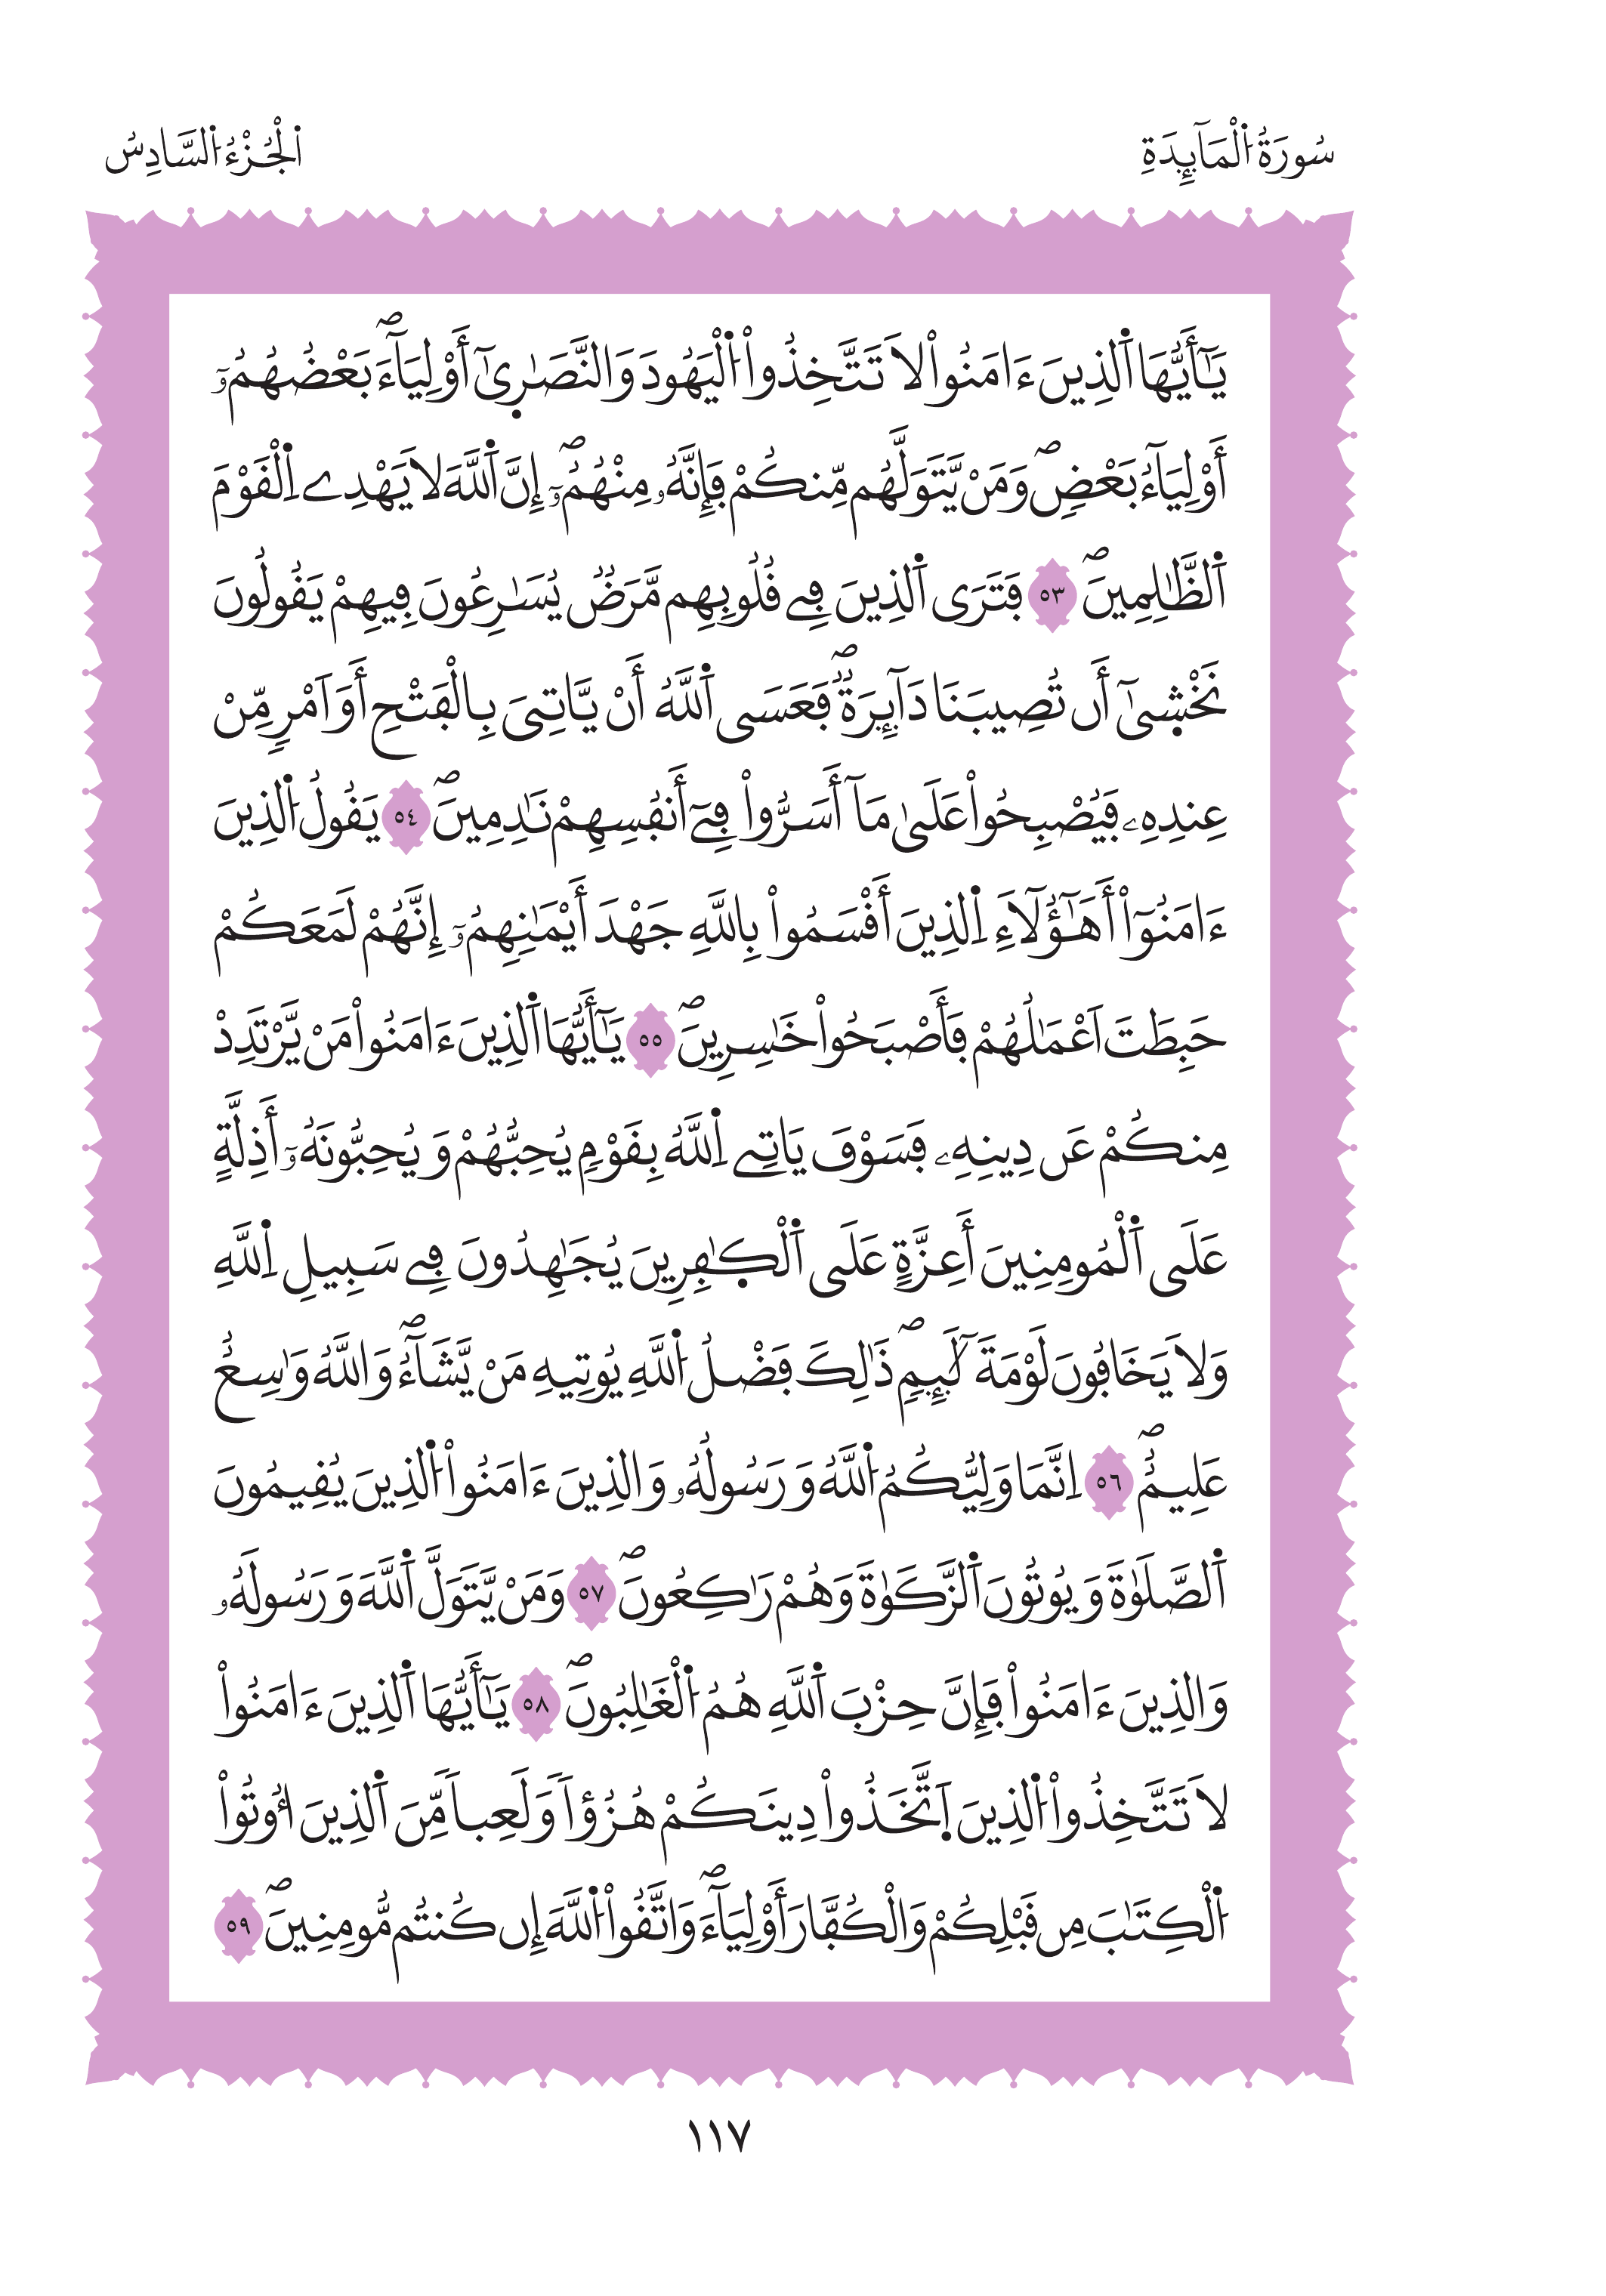 سُورَةُ اُ۬لْمَآئِدَةِ
اُ۬لْجُزْءُ اُ۬لسَّادِسُ
يَٰٓأَيُّهَا اَ۬لذِينَ ءَامَنُواْ لَا تَتَّخِذُواْ اُ۬لْيَهُودَ وَالنَّصَٰر۪ىٰٓ أَوْلِيَآءَۖ بَعْضُهُمُۥٓ
أَوْلِيَآءُ بَعْضٖۖ وَمَنْ يَّتَوَلَّهُم مِّنكُمْ فَإِنَّهُۥ مِنْهُمُۥٓۖ إِنَّ اَ۬للَّهَ لَا يَهْدِے اِ۬لْقَوْمَ
اَ۬لظَّٰلِمِينَۖ ٥٣ فَتَرَى اَ۬لذِينَ فِے قُلُوبِهِم مَّرَضٞ يُسَٰرِعُونَ فِيهِمْ يَقُولُونَ
نَخْش۪ىٰٓ أَن تُصِيبَنَا دَآئِرَةٞۖ فَعَسَى اَ۬للَّهُ أَنْ يَّاتِيَ بِالْفَتْحِ أَوَ اَمْرٖ مِّنْ
عِندِهِۦ فَيُصْبِحُواْ عَلَىٰ مَآ أَسَرُّواْ فِےٓ أَنفُسِهِمْ نَٰدِمِينَۖ ٥٤ يَقُولُ اُ۬لذِينَ
ءَامَنُوٓاْ أَهَٰٓؤُلَآءِ اِ۬لذِينَ أَقْسَمُواْ بِاللَّهِ جَهْدَ أَيْمَٰنِهِمُۥٓ إِنَّهُمْ لَمَعَكُمْ
حَبِطَتَ اَعْمَٰلُهُمْ فَأَصْبَحُواْ خَٰسِرِينَۖ ٥٥ يَٰٓأَيُّهَا اَ۬لذِينَ ءَامَنُواْ مَنْ يَّرْتَدِدْ
مِنكُمْ عَن دِينِهِۦ فَسَوْفَ يَاتِے اِ۬للَّهُ بِقَوْمٖ يُحِبُّهُمْ وَيُحِبُّونَهُۥٓ أَذِلَّةٍ
عَلَى اَ۬لْمُومِنِينَ أَعِزَّةٍ عَلَى اَ۬لْكٰ۪فِرِينَ يُجَٰهِدُونَ فِے سَبِيلِ اِ۬للَّهِ
وَلَا يَخَافُونَ لَوْمَةَ لَآئِمٖۖ ذَٰلِكَ فَضْلُ اُ۬للَّهِ يُوتِيهِ مَنْ يَّشَآءُۖ وَاللَّهُ وَٰسِعٌ
عَلِيمٌۖ ٥٦ اِنَّمَا وَلِيُّكُمُ اُ۬للَّهُ وَرَسُولُهُۥ وَالذِينَ ءَامَنُواْ اُ۬لذِينَ يُقِيمُونَ
اَ۬لصَّلَوٰةَ وَيُوتُونَ اَ۬لزَّكَوٰةَ وَهُمْ رَٰكِعُونَۖ ٥٧ وَمَنْ يَّتَوَلَّ اَ۬للَّهَ وَرَسُولَهُۥ
وَالذِينَ ءَامَنُواْ فَإِنَّ حِزْبَ اَ۬للَّهِ هُمُ اُ۬لْغَٰلِبُونَۖ ٥٨ يَٰٓأَيُّهَا اَ۬لذِينَ ءَامَنُواْ
لَا تَتَّخِذُواْ اُ۬لذِينَ اَ۪تَّخَذُواْ دِينَكُمْ هُزُؤاٗ وَلَعِباٗ مِّنَ اَ۬لذِينَ أُوتُواْ
اُ۬لْكِتَٰبَ مِن قَبْلِكُمْ وَالْكُفَّارَ أَوْلِيَآءَۖ وَاتَّقُواْ اُ۬للَّهَ إِن كُنتُم مُّومِنِينَۖ ٥٩
١١٧